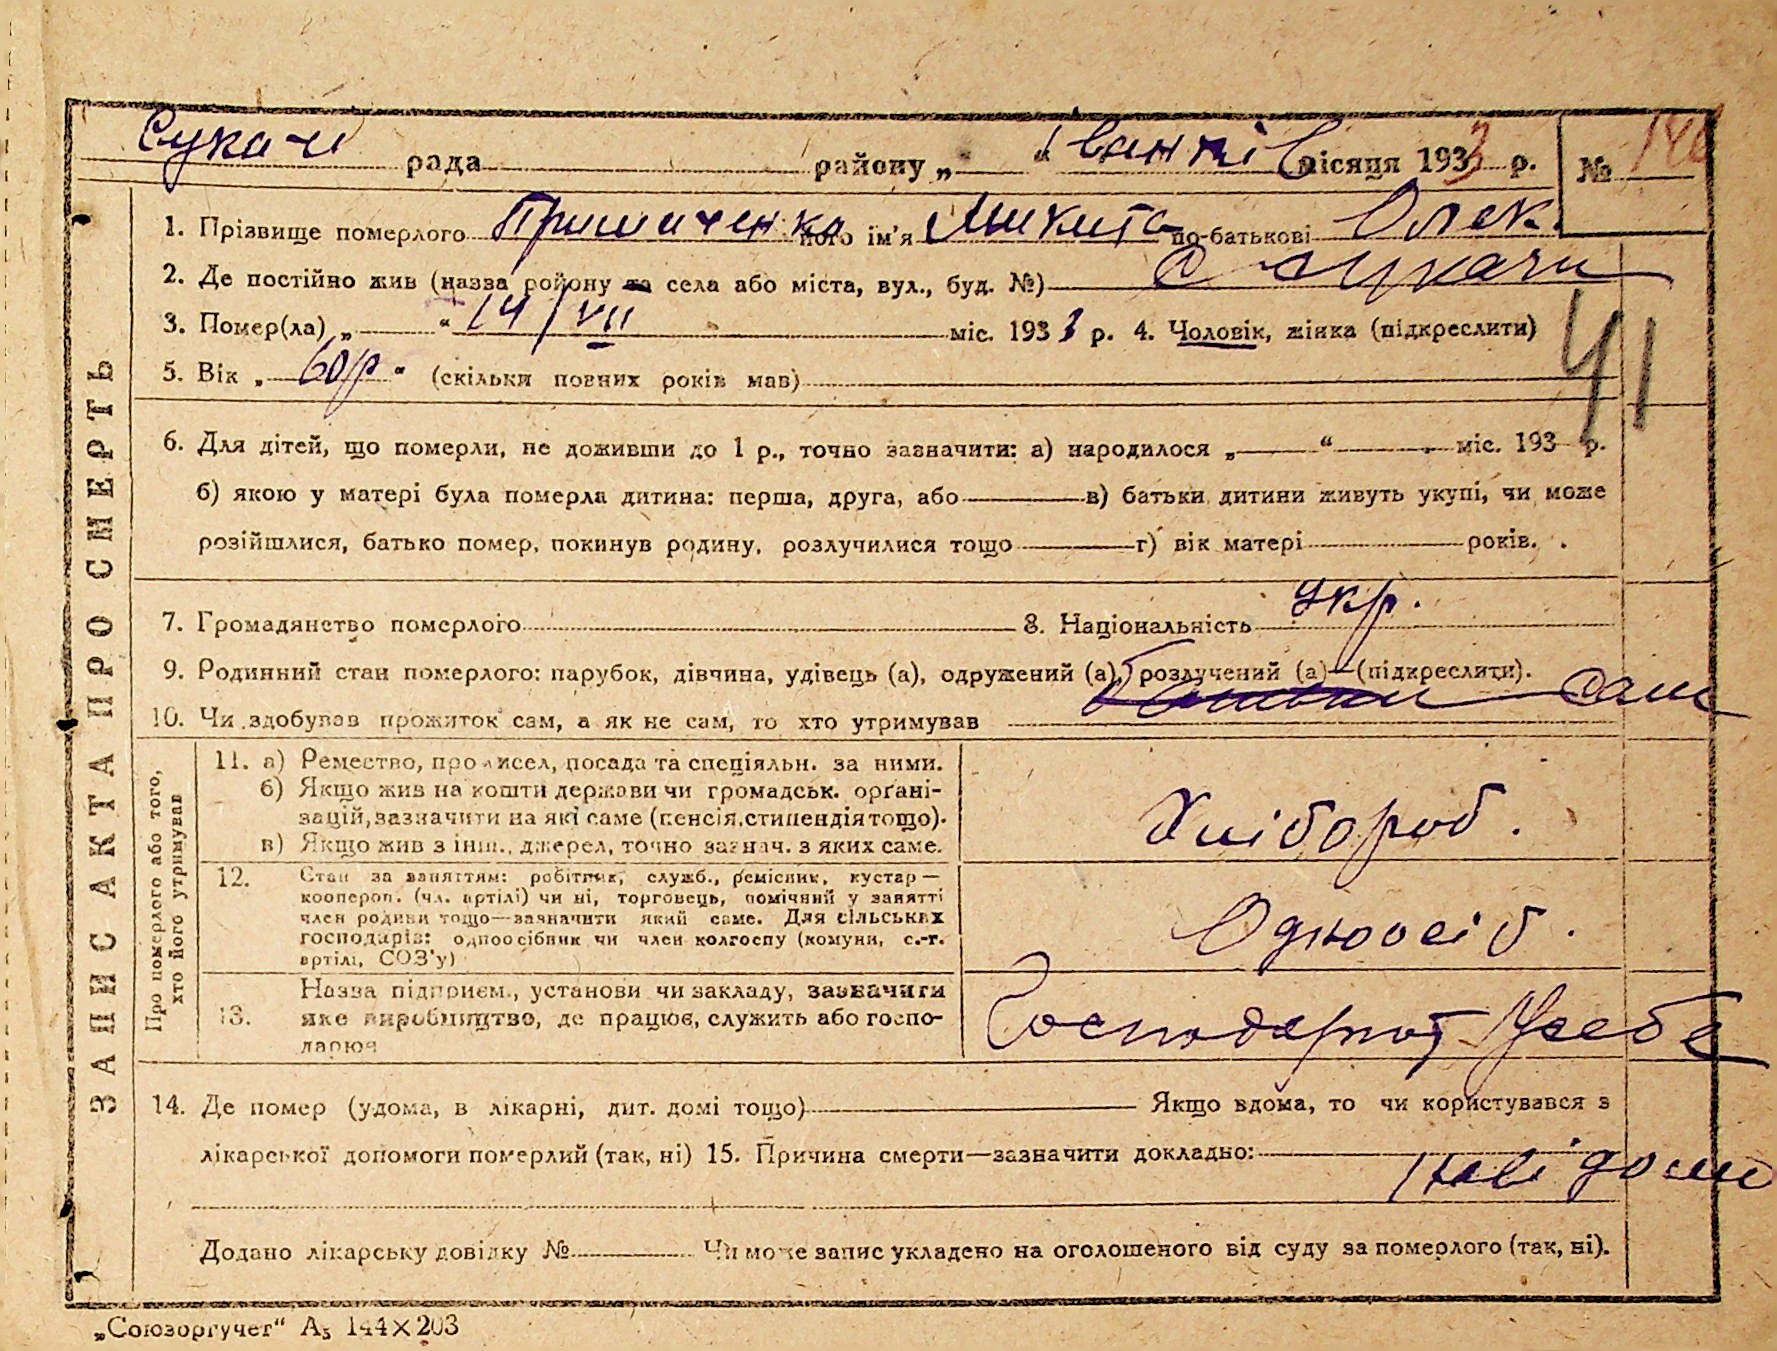 Сукачі рада району „ “ Іванків місяця 1933 р. № 146
1. Прізвище померлого Примаченко його ім'я Микита по-батькові Олек.
2. Де постійно жив (назва району та села або міста, вул., буд. №) с Сукачи
3. Помер(ла) „ “ 14/VII міс. 1933 р. 4. Чоловік, жінка (підкреслити)
41
5. Вік „ 60 р “ (скільки повних років мав)
6. Для дітей, що померли, не доживши до 1 р., точно зазначити: а) народилося „ “ міс. 193 р.
б) якою у матері була померла дитина: перша, друга, або в) батьки дитини живуть укупі, чи може
розійшлися, батько помер, покинув родину, розлучилися тощо г) вік матері років.
7. Громадянство померлого 8. Національність Укр.
9. Родинний стан померлого: парубок, дівчина, удівець (а), одружений (а), розлучений (а)—(підкреслити).
10. Чи здобував прожиток сам, а як не сам, то хто утримував сам
ЗАПИС АКТА ПРО СМЕРТЬ
Про померлого або того,
хто його утримував
11. а) Ремество, промисел, посада та спеціяльн. за ними.
б) Якщо жив на кошти держави чи громадськ. орґані-
зацій, зазначити на які саме (пенсія, стипендія тощо).
в) Якщо жив з інш., джерел, точно зазнач. з яких саме.
Хлібороб.
12. Стан за заняттям: робітник, служб., ремісник, кустар—
коопероп. (чл. артілі) чи ні, торговець, помічний у занятті
член родини тощо—зазначити який саме. Для сільських
господарів: одноосібник чи член колгоспу (комуни, с.-г.
артілі, СОЗ'у)
Одноосіб.
13. Назва підприєм., установи чи закладу, зазначити
яке виробництво, де працює, служить або госпо-
дарює
Господарст У себе
14. Де помер (удома, в лікарні, дит. домі тощо) Якщо вдома, то чи користувався з
лікарської допомоги померлий (так, ні) 15. Причина смерти—зазначити докладно:
Додано лікарську довідку № Чи може запис укладено на оголошеного від суду за померлого (так, ні).
„Союзоргучет“ А₅ 144×203